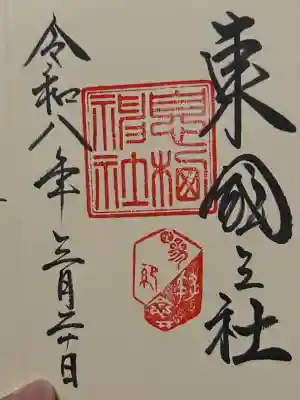 東國三社
息栖
神社
令和八年三月二十日